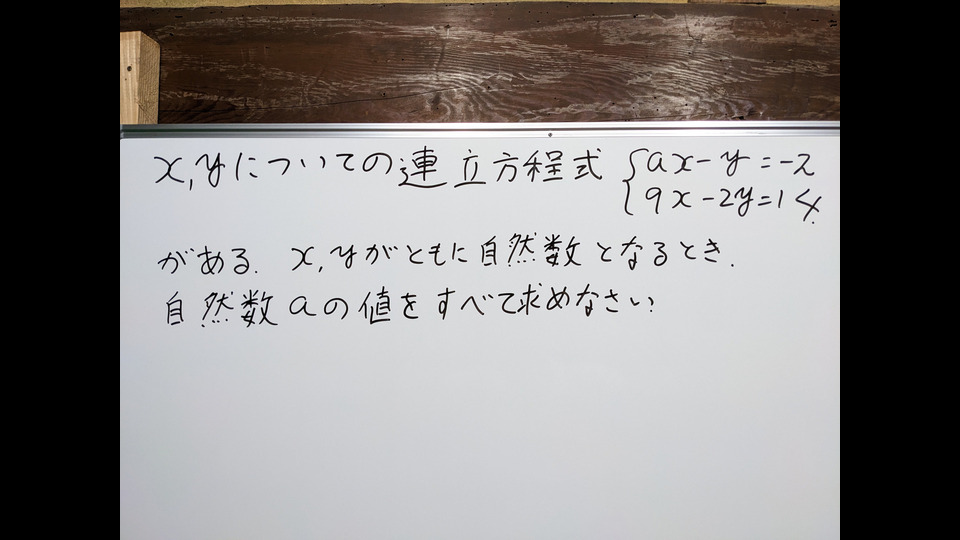 x,yについての連立方程式{ax-y=-2
{9x-2y=14
がある. x,yがともに自然数となるとき.
自然数aの値をすべて求めなさい.